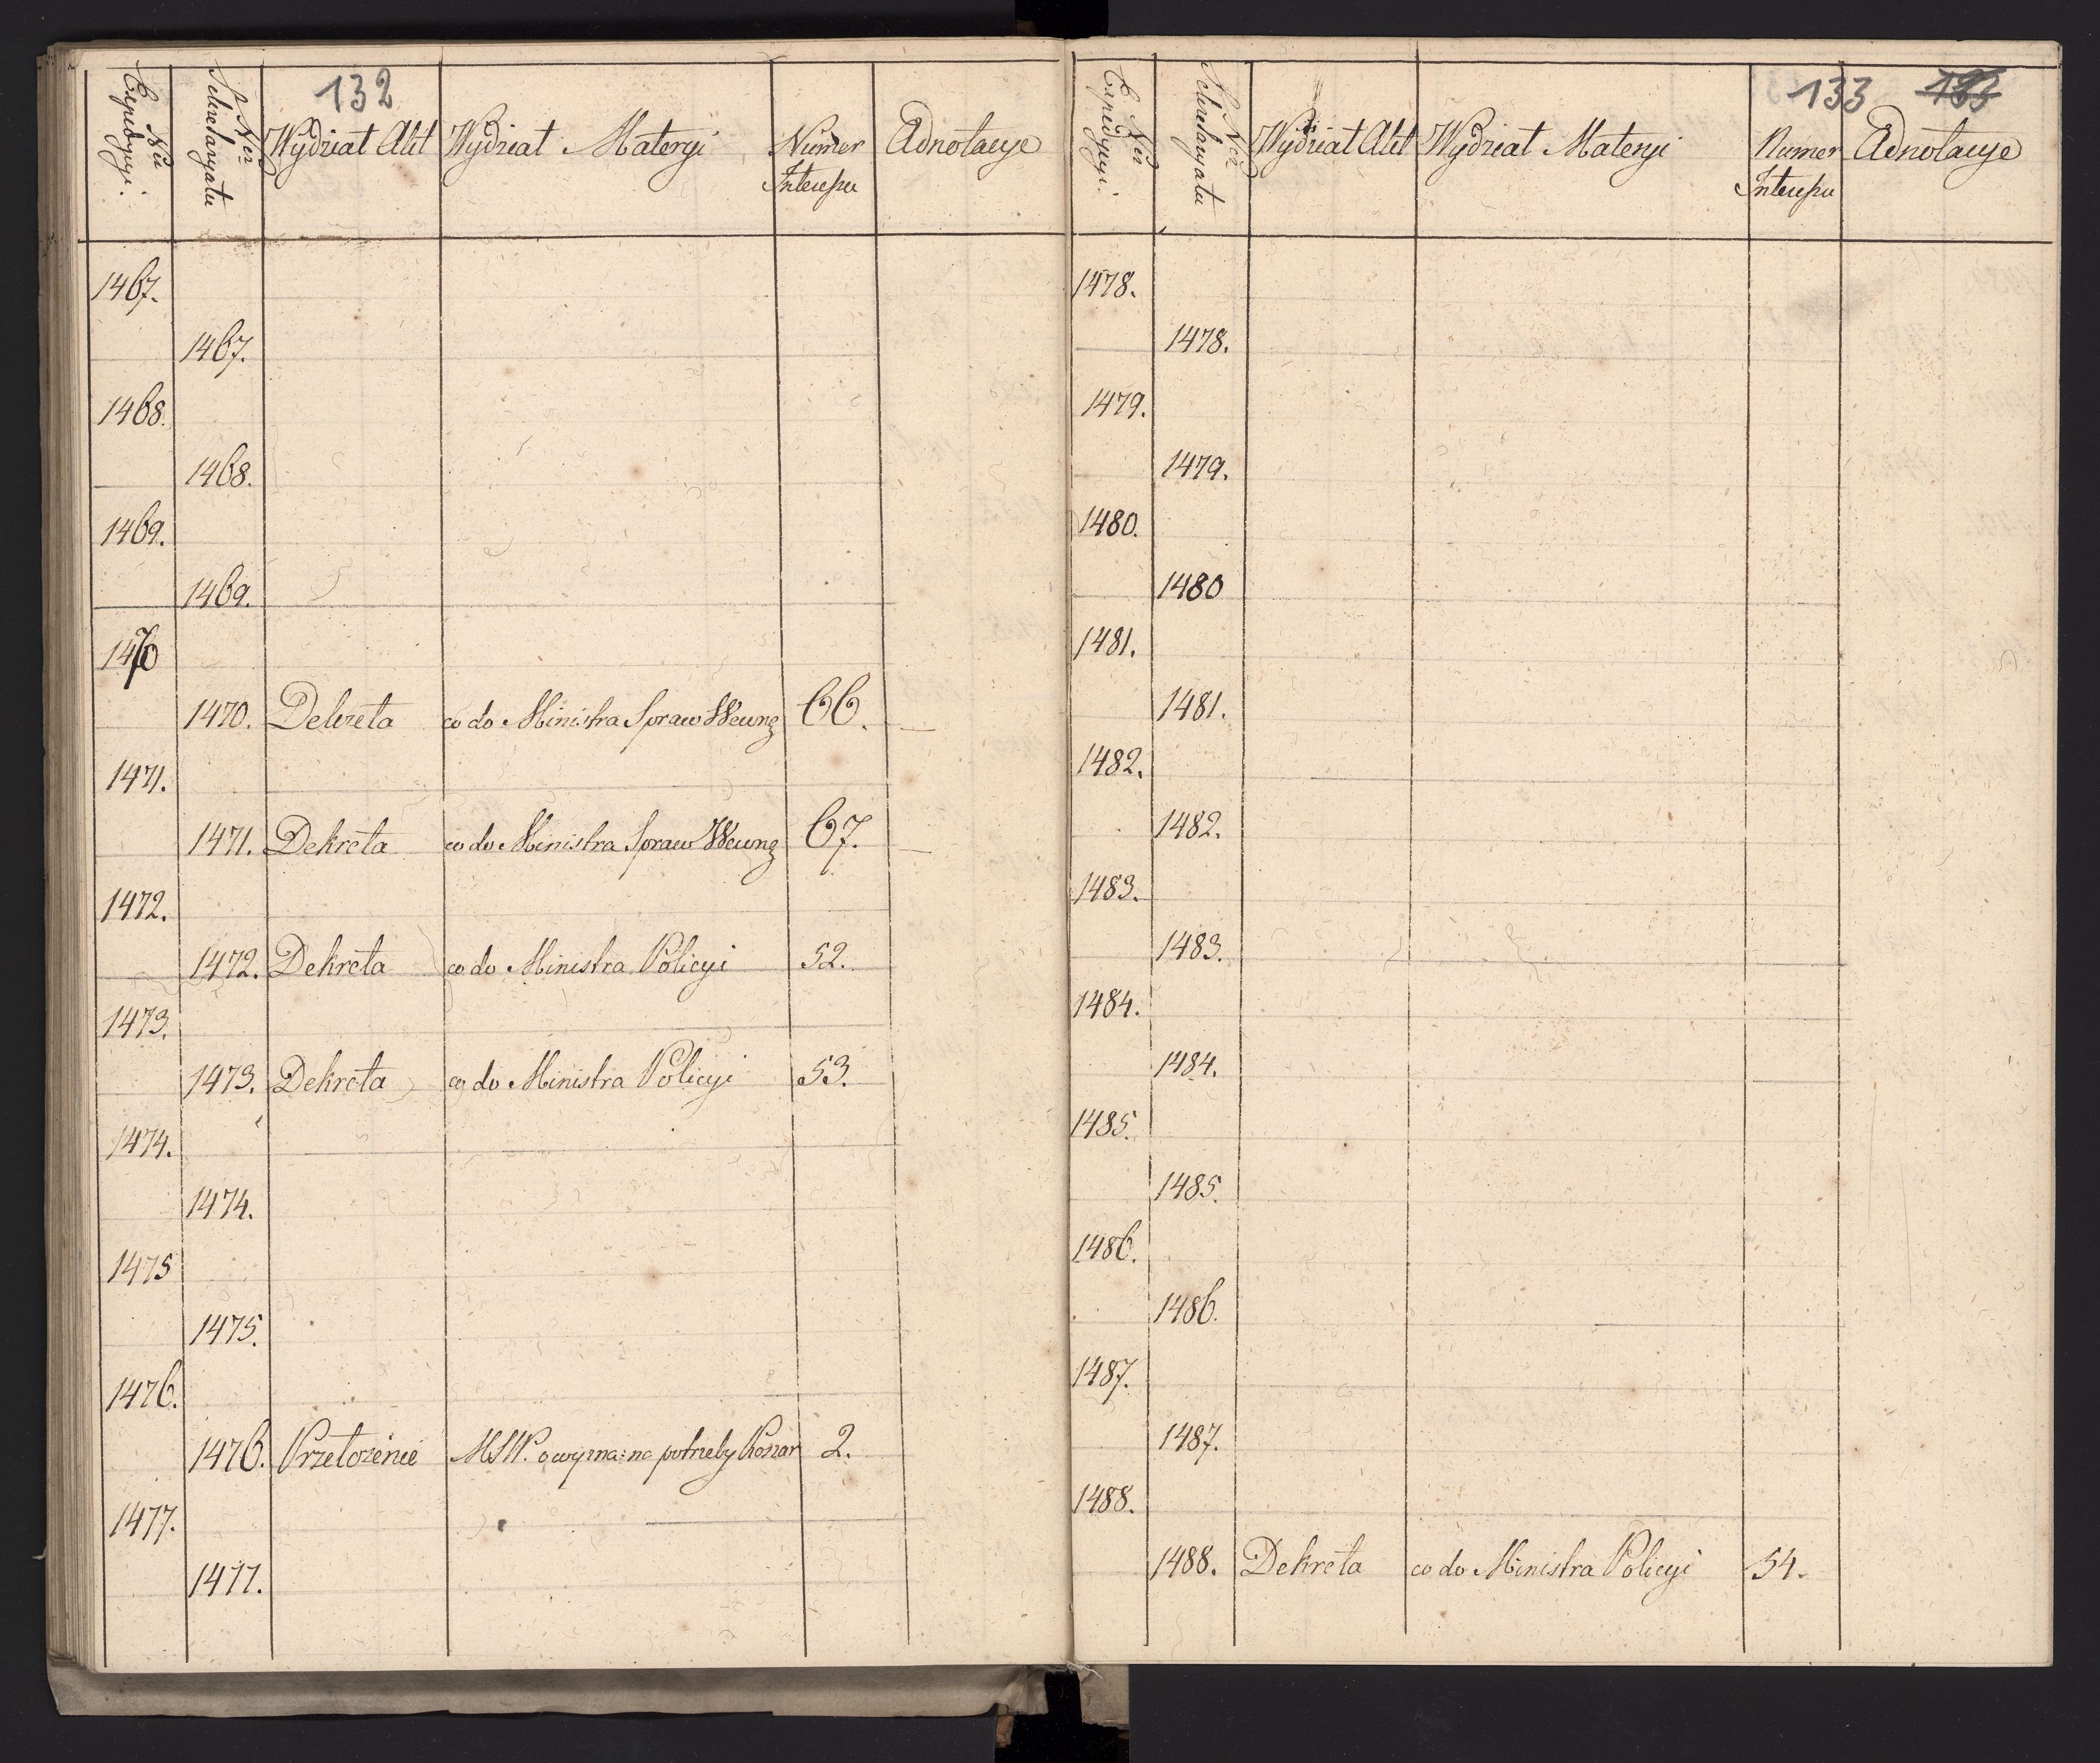 132
Nrũ Expedycyi.
Nrũ Sekretaryatu
Wydział Akt
Wydział Materyi
Numer
Adnotacye
1467.
1467.
1468.
1468.
1469.
1469.
1470
1470. Dekreta co do Ministra Spraw Wewng 66.
1471.
1471. Dekreta co do Ministra Spraw Wewng 67.
1472.
1472. Dekreta co do Ministra Policyi 52.
1473.
1473. Dekreta co do Ministra Policyi 53.
1474.
1474.
1475
1475.
1476.
1476. Przełożenie MSW. potrzeby 2.
1477.
1477.
133 133
Nrũ Expedycyi.
Nrũ Sekretaryatu
Wydział Akt
Wydział Materyi
Numer
Adnotacye
1478.
1478.
1479.
1479.
1480.
1480
1481.
1481.
1482.
1482.
1483.
1483.
1484.
1484.
1485.
1485.
1486.
1486.
1487.
1487.
1488.
1488. Dekreta co do Ministra Policyi 54.